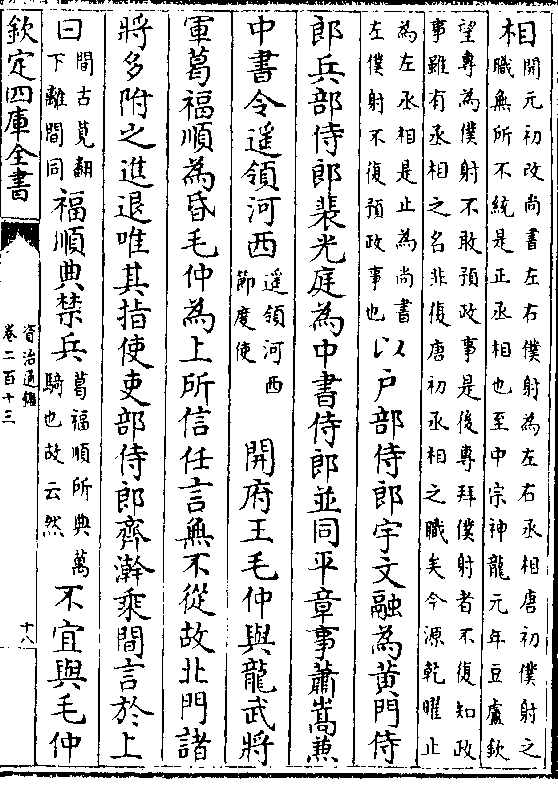 相開元初改尚書左右僕射為左右丞相唐初僕射之
職無所不統是正丞相也至中宗神龍元年豆盧欽
望專為僕射不敢預政事是後專拜僕射者不復知政
事雖有丞相之名非復唐初丞相之職矣今源乾曜止
為左丞相是止為尚書
左僕射不復預政事也以戶部侍郎宇文融為黃門侍
郎兵部侍郎裴光庭為中書侍郎並同平章事蕭嵩兼
中書令遥領河西遥領河西
節度使開府王毛仲與龍武將
軍葛福順為昏毛仲為上所信任言無不從故北門諸
將多附之進退唯其指使吏部侍郎齊澣乘間言於上
曰間古莧翻
下離間同福順典禁兵葛福順所典萬
騎也故云然不宜與毛仲
欽定四庫全書
資治通鑑
卷二百十三
十八